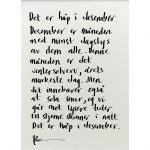 Det er håp i desember.
Desember er måneden
med minst dagslys
av dem alle. Denne
måneden er det
vintersolverv, årets
mørkeste dag. Men
det innebærer også
at som snur, og vi
går mot lysere tider.
en stjerne skinner i natt.
Det er håp i desember.